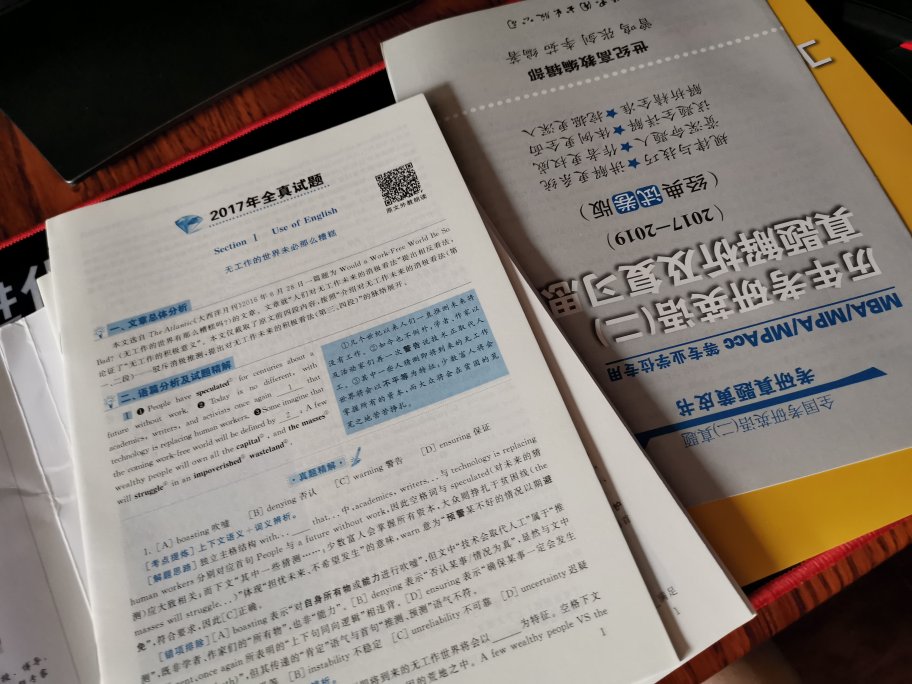 2017年全真试题
原文外教朗读
Section Ⅰ Use of English
无工作的世界未必那么糟糕
一、文章总体分析
本文选自 The Atlantic《大西洋月刊》2016 年 6 月 28 日一篇题为 Would a Work-Free World Be So
Bad?（无工作的世界有那么糟糕吗?）的文章。文章就“人们对无工作未来的消极看法”提出相反看法,
论证了“无工作的积极意义”。本文仅截取了原文的四段内容,按照“介绍对无工作未来的消极看法(第
一、二段)——驳斥消极推测,提出对无工作未来的积极看法(第三、四段)”的脉络展开。
二、语篇分析及试题精解
1 ❶ People have speculated① for centuries about a
future without work. ❷ Today is no different, with
academics, writers, and activists once again 1 that
technology is replacing human workers. ❸ Some imagine that
the coming work-free world will be defined by 2 . A few
wealthy people will own all the capital②, and the masses③
will struggle④ in an impoverished⑤ wasteland⑥.
①几个世纪以来人们一直推测未来将
没有工作。②如今也不例外,学者、作家以
及活动家们再一次警告说技术正取代人
工。③其中一些人猜测即将到来的无工作
世界将会以不平等为特征:少数富人将会
掌握所有的资本,而大众将会在贫困的荒
芜之地苦苦挣扎。
·真题精解·
1. [A] boasting 吹嘘 [B] denying 否认 [C] warning 警告 [D] ensuring 保证
[考点提炼] 上下文语义+词义辨析。
[解题思路] 独立主格结构 with... that... 中,academics, writers,... 与 technology is replacing
human workers 分别对应首句 People 与 a future without work, 因此空格词与 speculated(对未来的猜
测)应大致相关;而下文“其中一些猜测……,少数富人会掌握所有资本,大众则挣扎于贫困线(the
masses will struggle...)”体现“担忧未来、不希望发生”的意味,warn 意为“预警某不好的情况以期避
免”,符合要求,因此[C]正确。
[错项排除] [A] boasting 表示“对自身所有物或能力进行吹嘘”,但文中“技术会取代人工”属于“推
测”,既非学者、作家们的“所有物”,也非“能力”。[B] denying 表示“否认某事/情况为真”,显然与文中
once again 所表明的“上下句同向逻辑”相违背。[D] ensuring 表示“确保某事一定会发生
”,但其传递的“肯定”语气与首句“推测、预测”语气不符。
[B] instability 不稳定 [C] unreliability 不可靠 [D] uncertainty 迟疑
即将到来的无工作世界将会以 为特征。空格下文
的荒地之中。A few wealthy people VS the
1
全国考研英语(二)真题
考研真题黄皮书
MBA/MPA/MPAcc 等专业学位专用
历年考研英语(二)
真题解析及复习思
(2017—2019)
(经典试卷版)
规律与技巧★讲解更系统
资深命题人★作者更权威
试题全译★体例更全面
解析精全准★挖掘更深入
世纪高教编辑部
曾鸣 张剑 李茹 编著